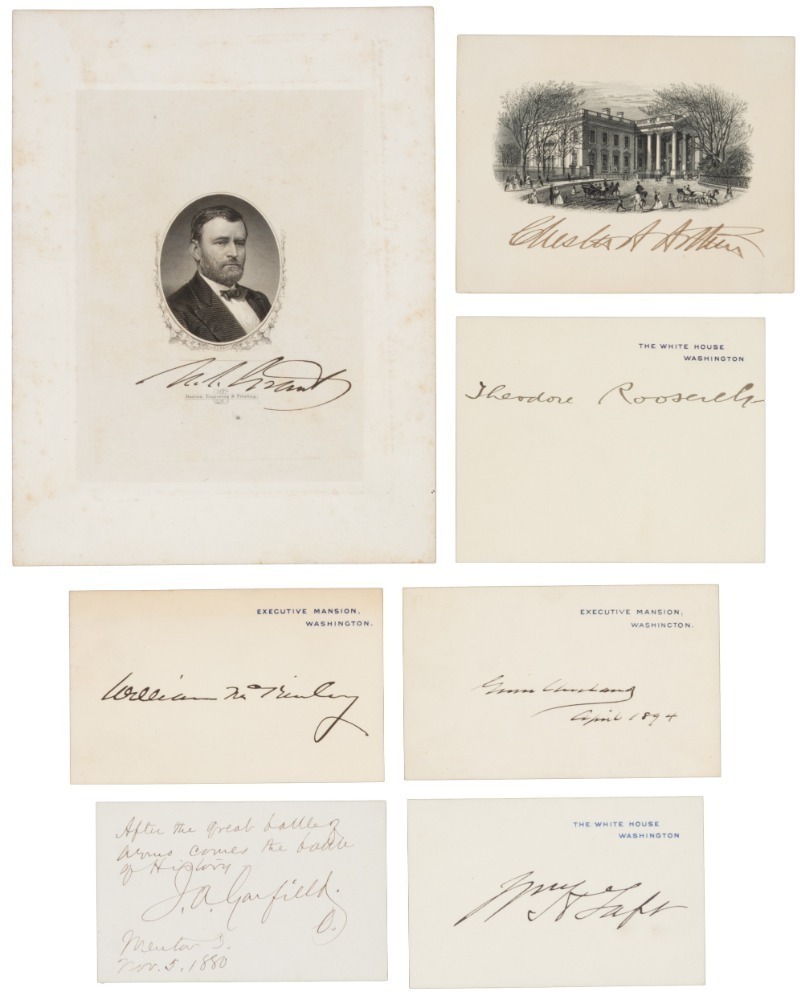 U. S. Grant
Bureau, Engraving & Printing.
Chester A Arthur
THE WHITE HOUSE
WASHINGTON
Theodore Roosevelt
EXECUTIVE MANSION,
WASHINGTON.
William McKinley
EXECUTIVE MANSION,
WASHINGTON.
Grover Cleveland
April 1894
After the great battle of
Arms comes the battle
of History
J. A. Garfield.
Mentor O.
Nov. 5, 1880
THE WHITE HOUSE
WASHINGTON
Wm H Taft